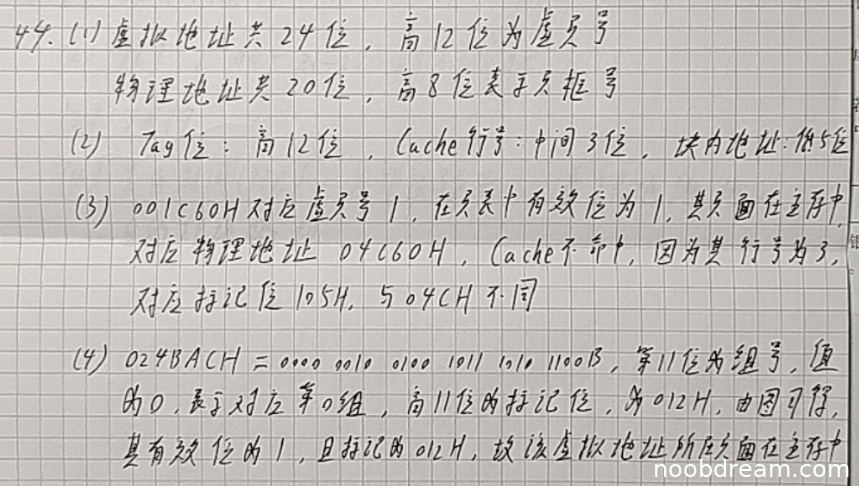 44. (1) 虚拟地址共24位，高12位为虚页号
物理地址共20位，高8位表示页框号
(2) Tag位：高12位，Cache行号：中间3位，块内地址：低5位
(3) 001C60H对应虚页号1，在页表中有效位为1，其页面在主存中，
对应物理地址04C60H，Cache不命中，因为其行号为3，
对应标记位105H，与04CH不同
(4) 024BACH = 0000 0010 0100 1011 1010 1100B，第11位为组号，值
为0，表示对应第0组，高11位为标记位，为012H，由图可得，
其有效位为1，且标记为012H，故该虚拟地址所在页面在主存中
noobdream.com